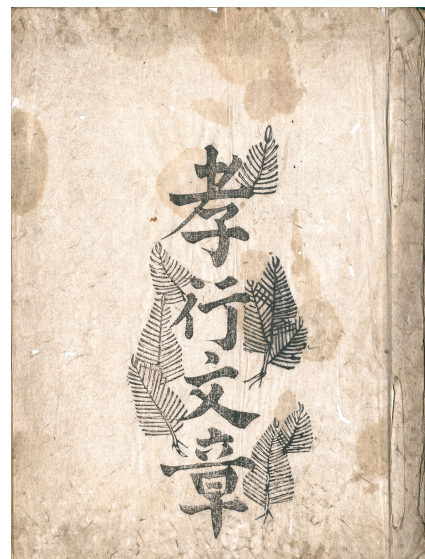 孝行文章